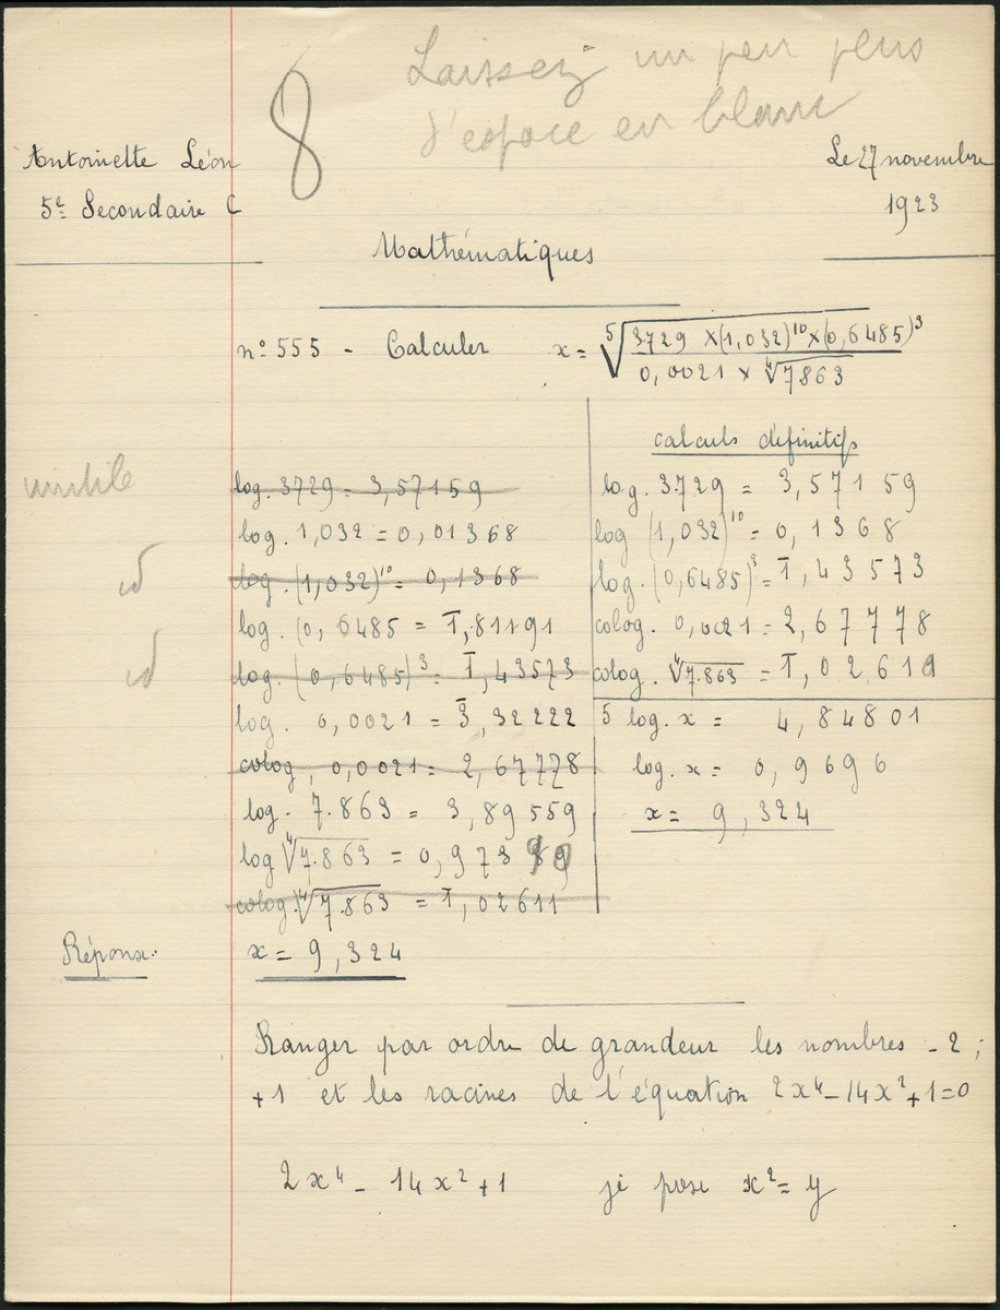 8
Laissez un peu plus
d'espace en blanc
Antoinette Léon
5e Secondaire C
Le 27 novembre
1923
Mathématiques
n° 555 - Calculer x = ⁵√(3729 × (1,032)¹⁰ × (0,6485)³ / 0,0021 × ⁴√7863)
inutile
id
id
log. 3729 = 3,57159
log. 1,032 = 0,01368
log. (1,032)¹⁰ = 0,1368
log. (0,6485 = 1̅,81191
log. (0,6485)³ = 1̅,43573
log. 0,0021 = 3̅,32222
colog, 0,0021 = 2,67778
log. 7.863 = 3,89559
log ⁴√7.863 = 0,97390
colog. ⁴√7.863 = 1̅,02611
calculs définitifs
log. 3.729 = 3,57159
log (1,032)¹⁰ = 0,1368
log. (0,6485)³ = 1̅,43573
colog. 0,0021 = 2,67778
colog. ⁴√7.863 = 1̅,02611
5 log. x = 4,84801
log. x = 0,9696
x = 9,324
Réponse:
x = 9,324
Ranger par ordre de grandeur les nombres -2;
+1 et les racines de l'équation 2x⁴-14x²+1=0
2x⁴ - 14x² + 1 je pose x² = y